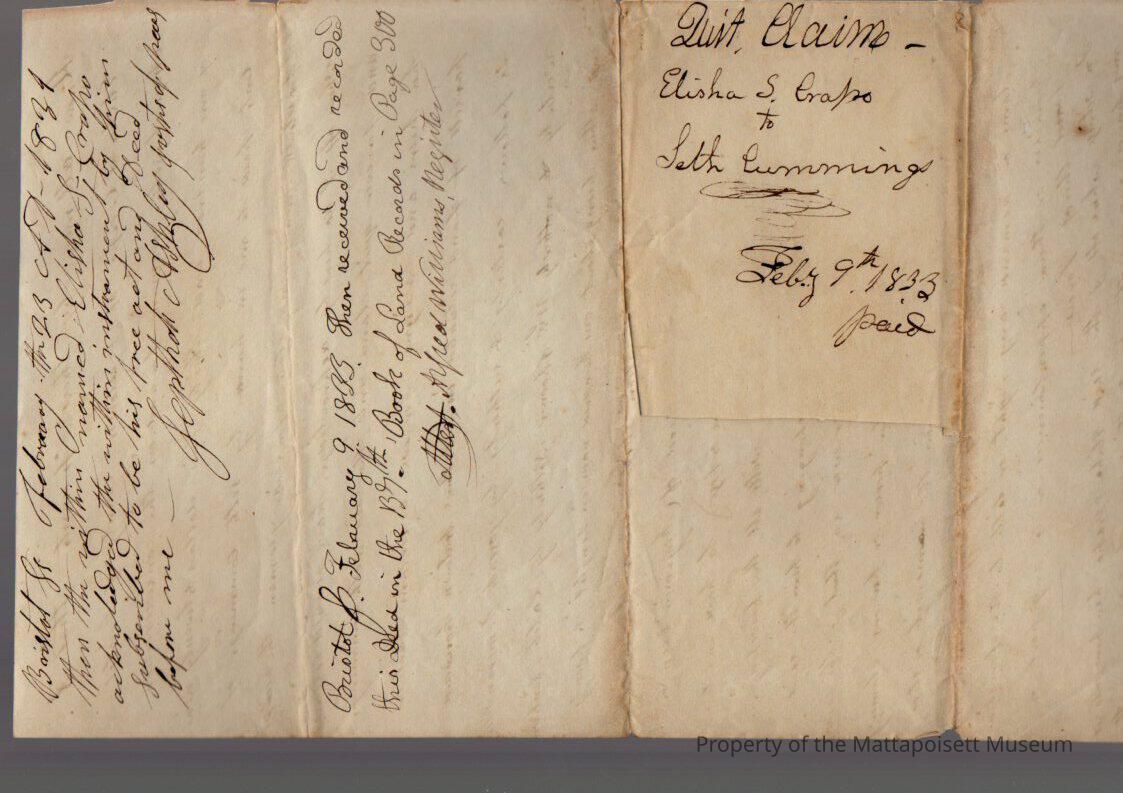 Bristol Ss February the 23 AD-1831
then the within named Elisha S. Crapo
acknoledged the within instrument by him
subscribed to be his free act and Deed
before me Jepthah Ashley justis of peas
Bristol Ss. February 9 1833. Then received and recorded
this Deed in the 137th. Book of Land Records in Page 300
Attest. Alfred Williams, Register
Quit, Claim -
Elisha S. Crapo
to
Seth Cummings
Feby 9th. 1833
paid
Property of the Mattapoisett Museum